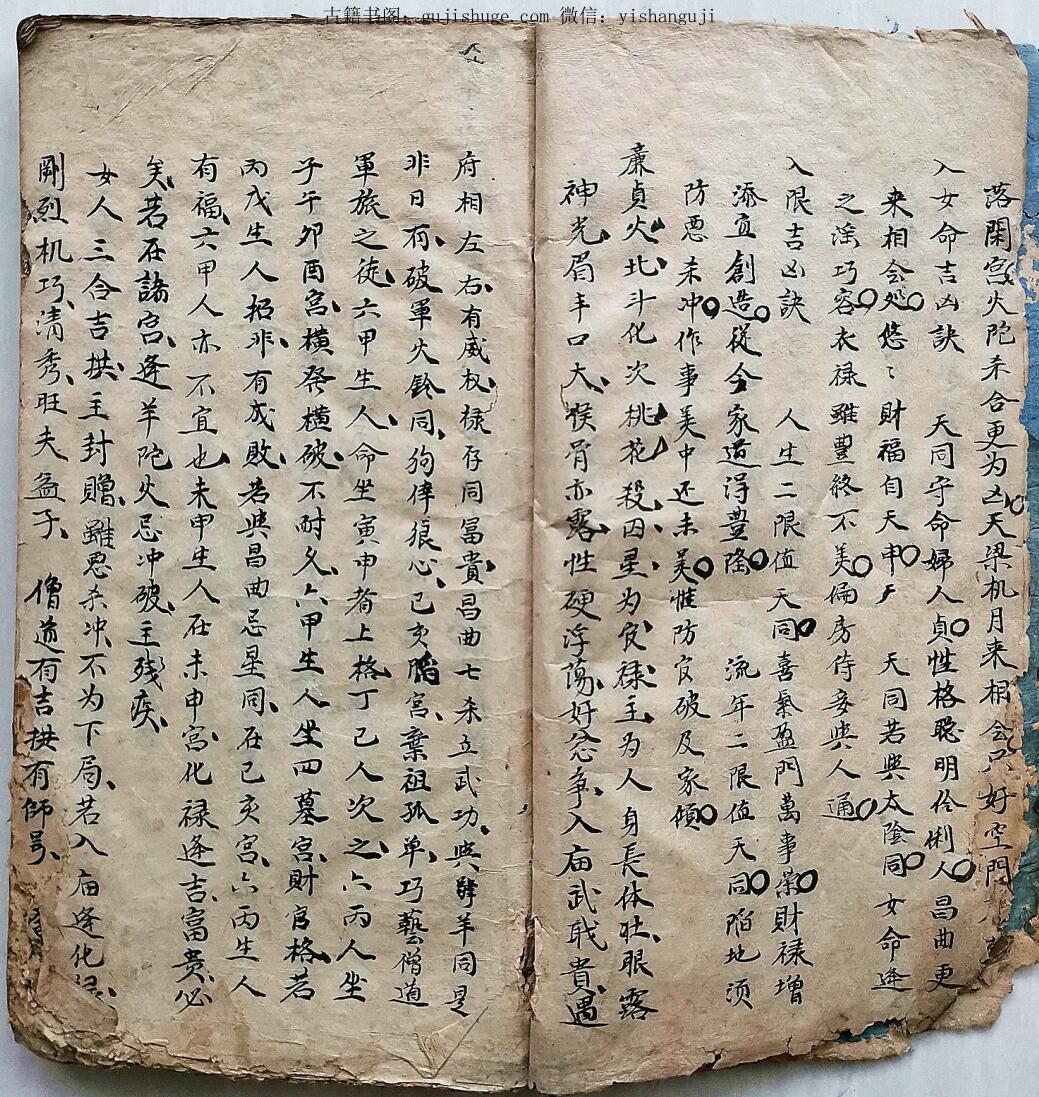 古籍书图：gujishuge.com 微信：yishanguji
落閑宮火陀杀合更为凶天梁机月来相会只好空門
入女命吉凶訣　天同守命婦人貞性格聪明伶俐人昌曲更
来相会处悠〻財福自天申　天同若與太陰同女命逢
之淫巧容衣禄雖豊終不美偏房侍妾與人通
入限吉凶訣　人生二限值天同喜氣盈門萬事榮財禄增
添宜創造從今家道淂豊隆　流年二限值天同陷地须
防恶杀冲作事美中还未美惟防官破及家傾
廉貞火北斗化次桃花殺囚星为官禄主为人身長体壮眼露
神光眉丰口大喉骨亦露性硬浮蕩好忿争入庙武职貴遇
府相左右有威权禄存同富貴昌曲七杀立武功與擎羊同是
非日有破軍火鈴同狗倖狼心已亥陷宮棄祖孤单巧藝僧道
軍旅之徒六甲生人命坐寅申者上格丁己人次之六丙人坐
子午卯酉宮横癹横破不耐久六甲生人坐四墓宮財官格若
丙戊生人招非有成敗若與昌曲忌星同在已亥宮六丙生人
有福六甲人亦不宜也未甲生人在未申宮化禄逢吉富贵必
矣若在諸宮逢羊陀火忌冲破主残疾
女人三合吉拱主封贈雖恶杀冲不为下局若入庙逢化禄
刚烈机巧清秀旺夫益子　僧道有吉拱有師号